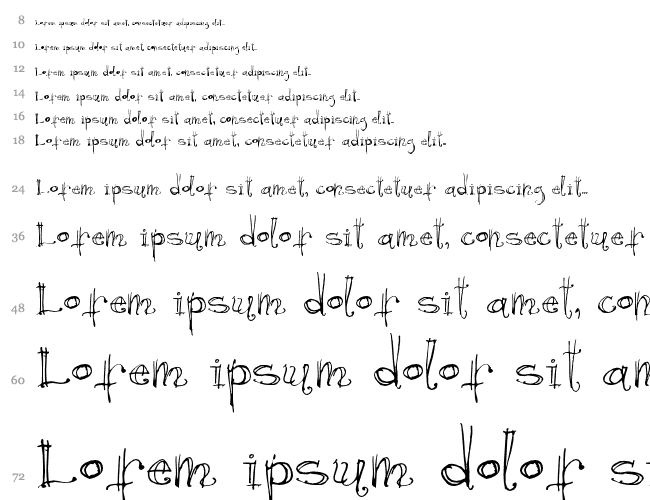 8 Lorem ipsum dolor sit amet, consectetuer adipiscing elit...
10 Lorem ipsum dolor sit amet, consectetuer adipiscing elit...
12 Lorem ipsum dolor sit amet, consectetuer adipiscing elit...
14 Lorem ipsum dolor sit amet, consectetuer adipiscing elit...
16 Lorem ipsum dolor sit amet, consectetuer adipiscing elit...
18 Lorem ipsum dolor sit amet, consectetuer adipiscing elit...
24 Lorem ipsum dolor sit amet, consectetuer adipiscing elit...
36 Lorem ipsum dolor sit amet, consectetuer
48 Lorem ipsum dolor sit amet, con
60 Lorem ipsum dolor sit am
72 Lorem ipsum dolor si